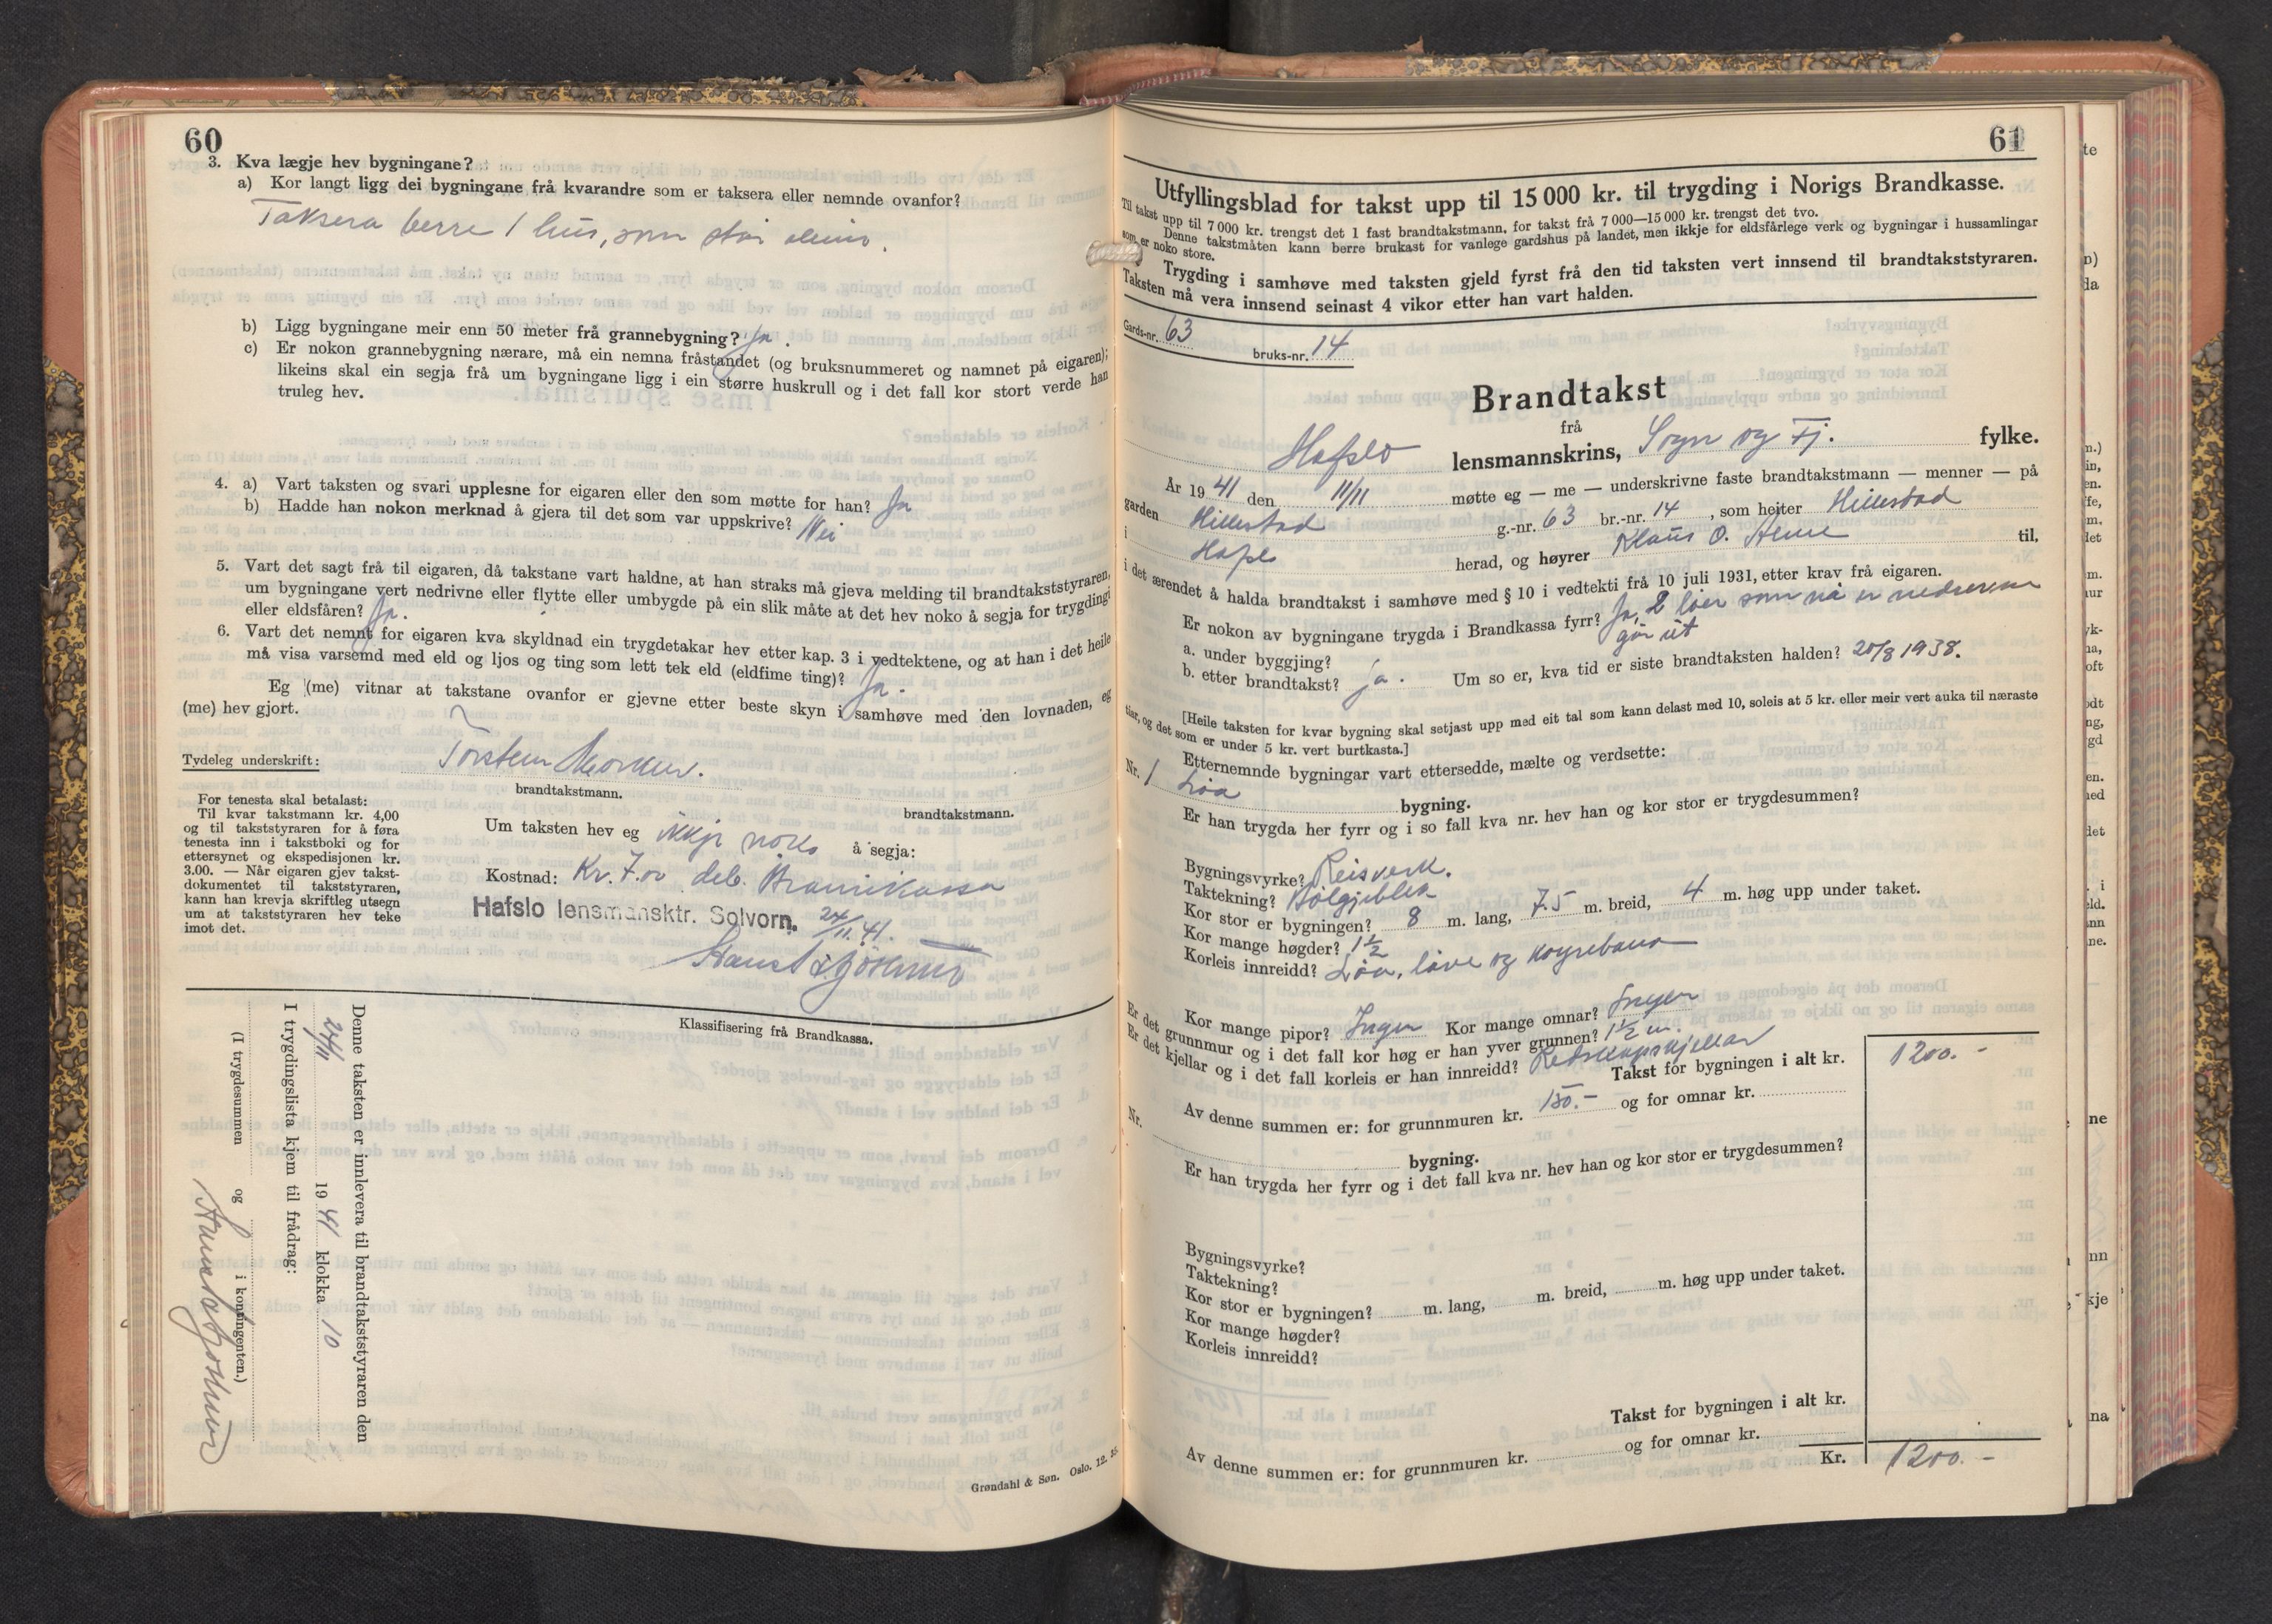 60
3. Kva lægje hev bygningane?
a) Kor langt ligg dei bygningane frå kvarandre som er taksera eller nemnde ovanfor?
Taksera berre 1 hus, som står aleine.
b) Ligg bygningane meir enn 50 meter frå grannebygning? Ja.
c) Er nokon grannebygning nærare, må ein nemna fråstandet (og bruksnummeret og namnet på eigaren);
likeins skal ein segja frå um bygningane ligg i ein større huskrull og i det fall kor stort verde han
truleg hev.
4. a) Vart taksten og svari upplesne for eigaren eller den som møtte for han? Ja
b) Hadde han nokon merknad å gjera til det som var uppskrive? Nei
5. Vart det sagt frå til eigaren, då takstane vart haldne, at han straks må gjeva melding til brandtakststyraren,
um bygningane vert nedrivne eller flytte eller umbygde på ein slik måte at det hev noko å segja for trygdingi
eller eldsfåren? Ja.
6. Vart det nemnt for eigaren kva skyldnad ein trygdetakar hev etter kap. 3 i vedtektene, og at han i det heile
må visa varsemd med eld og ljos og ting som lett tek eld (eldfime ting)? Ja.
Eg (me) vitnar at takstane ovanfor er gjevne etter beste skyn i samhøve med den lovnaden, eg
(me) hev gjort.
Tydeleg underskrift: Torstein
brandtakstmann.
brandtakstmann.
For tenesta skal betalast:
Til kvar takstmann kr. 4,00
og til takststyraren for å føra
tenesta inn i takstboki og for
ettersynet og ekspedisjonen kr.
3.00. — Når eigaren gjev takst-
dokumentet til takststyraren,
kann han krevja skriftleg utsegn
um at takststyraren hev teke
imot det.
Um taksten hev eg ikkje noko å segja:
Kostnad: Kr. 7.00 deb. Brannkassa
Hafslo lensmansktr. Solvorn. 24/11.41.
Klassifisering frå Brandkassa.
Denne taksten er innlevera til brandtakststyraren den
24/11 1941 klokka 10
I trygdingslista kjem til frådrag:
(I trygdesummen og i kontingenten.)
Grøndahl & Søn. Oslo. 12. 35.
61
Utfyllingsblad for takst upp til 15 000 kr. til trygding i Norigs Brandkasse.
Til takst upp til 7 000 kr. trengst det 1 fast brandtakstmann, for takst frå 7 000—15 000 kr. trengst det tvo.
Denne takstmåten kann berre brukast for vanlege gardshus på landet, men ikkje for eldsfårlege verk og bygningar i hussamlingar
som er noko store.
Trygding i samhøve med taksten gjeld fyrst frå den tid taksten vert innsend til brandtakststyraren.
Taksten må vera innsend seinast 4 vikor etter han vart halden.
Gards-nr. 63 bruks-nr. 14
Brandtakst
frå
Hafslo lensmannskrins, Sogn og Fj. fylke.
År 1941 den 11/11 møtte eg — me — underskrivne faste brandtakstmann — menner — på
garden Hillestad g.-nr. 63 br.-nr. 14, som heiter Hillestad
i Hafslo herad, og høyrer Klaus O. til,
i det ærendet å halda brandtakst i samhøve med § 10 i vedtekti frå 10 juli 1931, etter krav frå eigaren.
Er nokon av bygningane trygda i Brandkassa fyrr? Ja, 2 løer som nå er nedrevne
går ut
a. under byggjing?
b. etter brandtakst? ja. Um so er, kva tid er siste brandtaksten halden? 20/8 1938.
[Heile taksten for kvar bygning skal setjast upp med eit tal som kann delast med 10, soleis at 5 kr. eller meir vert auka til næraste
tiar, og det som er under 5 kr. vert burtkasta.]
Etternemnde bygningar vart ettersedde, mælte og verdsette:
Nr. 1 Løa bygning.
Er han trygda her fyrr og i so fall kva nr. hev han og kor stor er trygdesummen?
Bygningsvyrke? Reisverk.
Taktekning? Bølgjeblek
Kor stor er bygningen? 8 m. lang, 7.5 m. breid, 4 m. høg upp under taket.
Kor mange høgder? 1 1/2
Korleis innreidd? Løa, låve og køyrebana
Kor mange pipor? Ingen Kor mange omnar? Ingen
Er det grunnmur og i det fall kor høg er han yver grunnen? 1 1/2 m.
Er det kjellar og i det fall korleis er han innreidd? Reiskapskjellar
Takst for bygningen i alt kr. 1200.-
Av denne summen er: for grunnmuren kr. 150.- og for omnar kr.
Nr. bygning.
Er han trygda her fyrr og i det fall kva nr. hev han og kor stor er trygdesummen?
Bygningsvyrke?
Taktekning?
Kor stor er bygningen? m. lang, m. breid, m. høg upp under taket.
Kor mange høgder?
Korleis innreidd?
Takst for bygningen i alt kr.
Av denne summen er: for grunnmuren kr. og for omnar kr.
Kr. 1200.-